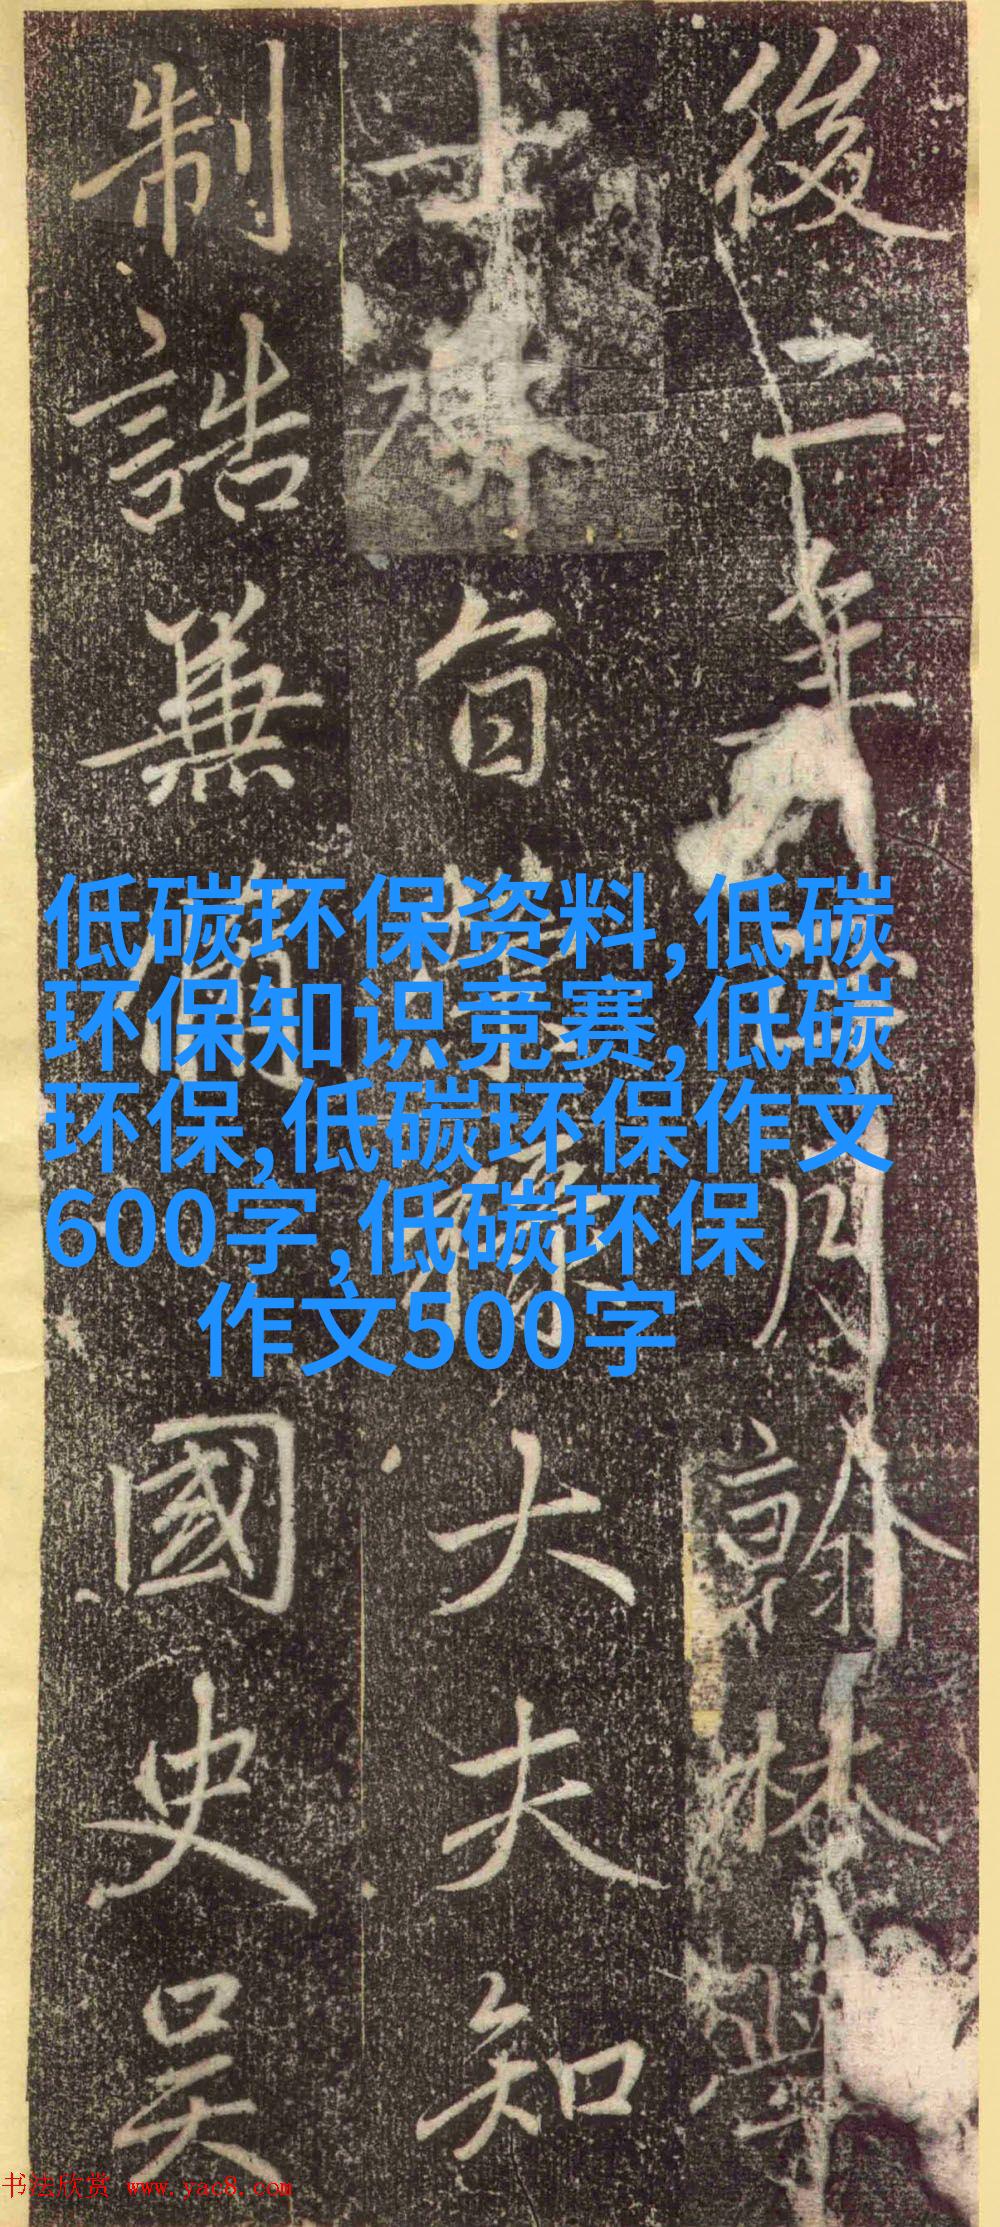 後二年月翰林學
士旨大夫知
制誥兼國史吴
低碳环保资料,低碳
环保知识竞赛,低碳
环保,低碳环保作文
600字,低碳环保
作文500字
书法欣赏 www.yac8.com